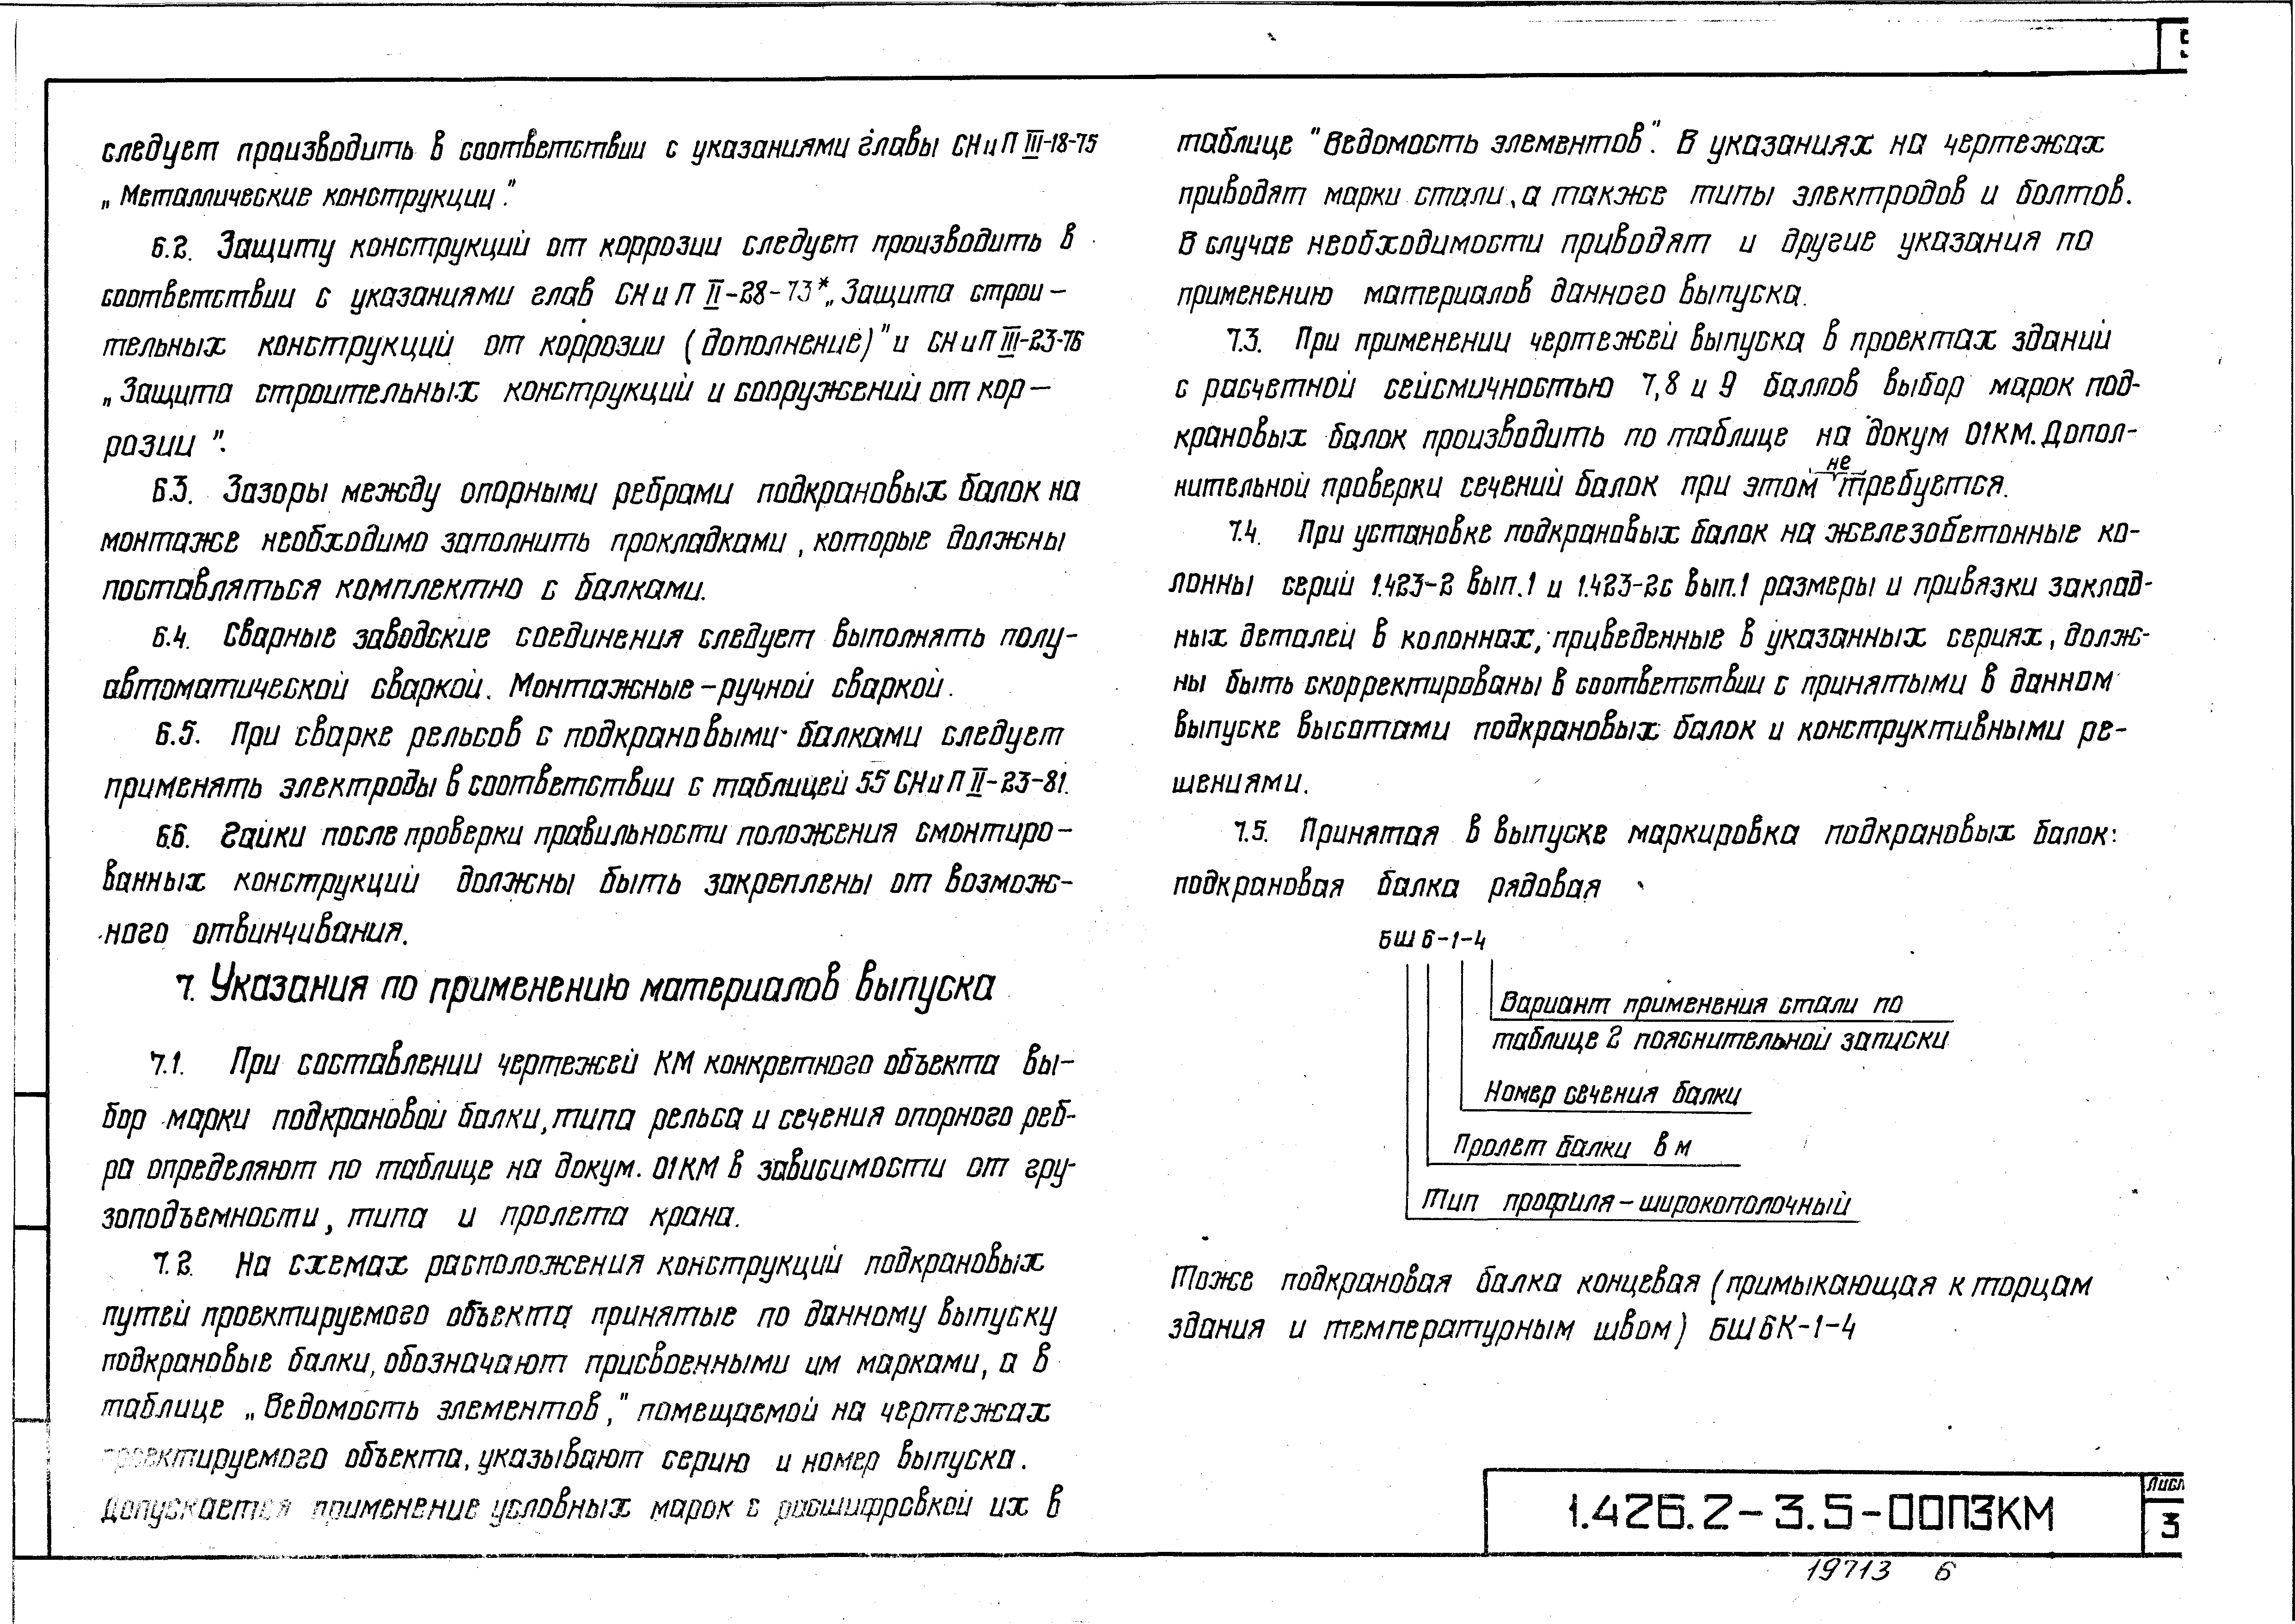 следует производить в соответствии с указаниями главы СНиП III-18-75
„Металлические конструкции".
6.2. Защиту конструкций от коррозии следует производить в
соответствии с указаниями глав СНиП II-28-73* „Защита строи-
тельных конструкций от коррозии (дополнение)" и СНиП III-23-76
„Защита строительных конструкций и сооружений от кор-
розии".
6.3. Зазоры между опорными ребрами подкрановых балок на
монтаже необходимо заполнить прокладками, которые должны
поставляться комплектно с балками.
6.4. Сварные заводские соединения следует выполнять полу-
автоматической сваркой. Монтажные - ручной сваркой.
6.5. При сварке рельсов с подкрановыми балками следует
применять электроды в соответствии с таблицей 55 СНиП II-23-81.
6.6. Гайки после проверки правильности положения смонтиро-
ванных конструкций должны быть закреплены от возмож-
ного отвинчивания.
7. Указания по применению материалов выпуска
7.1. При составлении чертежей КМ конкретного объекта вы-
бор марки подкрановой балки, типа рельса и сечения опорного реб-
ра определяют по таблице на докум. 01КМ в зависимости от гру-
зоподъемности, типа и пролета крана.
7.2. На схемах расположения конструкций подкрановых
путей проектируемого объекта принятые по данному выпуску
подкрановые балки, обозначают присвоенными им марками, а в
таблице „Ведомость элементов," помещаемой на чертежах
проектируемого объекта, указывают серию и номер выпуска.
Допускается применение условных марок с расшифровкой их в
таблице "Ведомость элементов". В указаниях на чертежах
приводят марки стали, а также типы электродов и болтов.
В случае необходимости приводят и другие указания по
применению материалов данного выпуска.
7.3. При применении чертежей выпуска в проектах зданий
с расчетной сейсмичностью 7,8 и 9 баллов выбор марок под-
крановых балок производить по таблице на докум 01КМ. Допол-
нительной проверки сечений балок при этом не требуется.
7.4. При установке подкрановых балок на железобетонные ко-
лонны серий 1.423-2 вып.1 и 1.423-2с вып.1 размеры и привязки заклад-
ных деталей в колоннах, приведенные в указанных сериях, долж-
ны быть скорректированы в соответствии с принятыми в данном
выпуске высотами подкрановых балок и конструктивными ре-
шениями.
7.5. Принятая в выпуске маркировка подкрановых балок:
подкрановая балка рядовая
БШ 6-1-4
Вариант применения стали по
таблице 2 пояснительной записки
Номер сечения балки
Пролет балки в м
Тип профиля - широкополочный
Тоже подкрановая балка концевая (примыкающая к торцам
здания и температурным швом) БШ6К-1-4
1.426.2-3.5-00ПЗКМ
Лист
3
19713 6